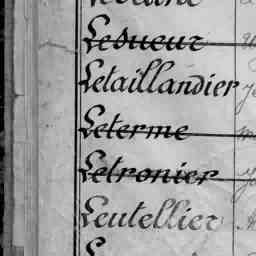 Lesueur
Letaillandier
Leterme
Letronier
Leutellier